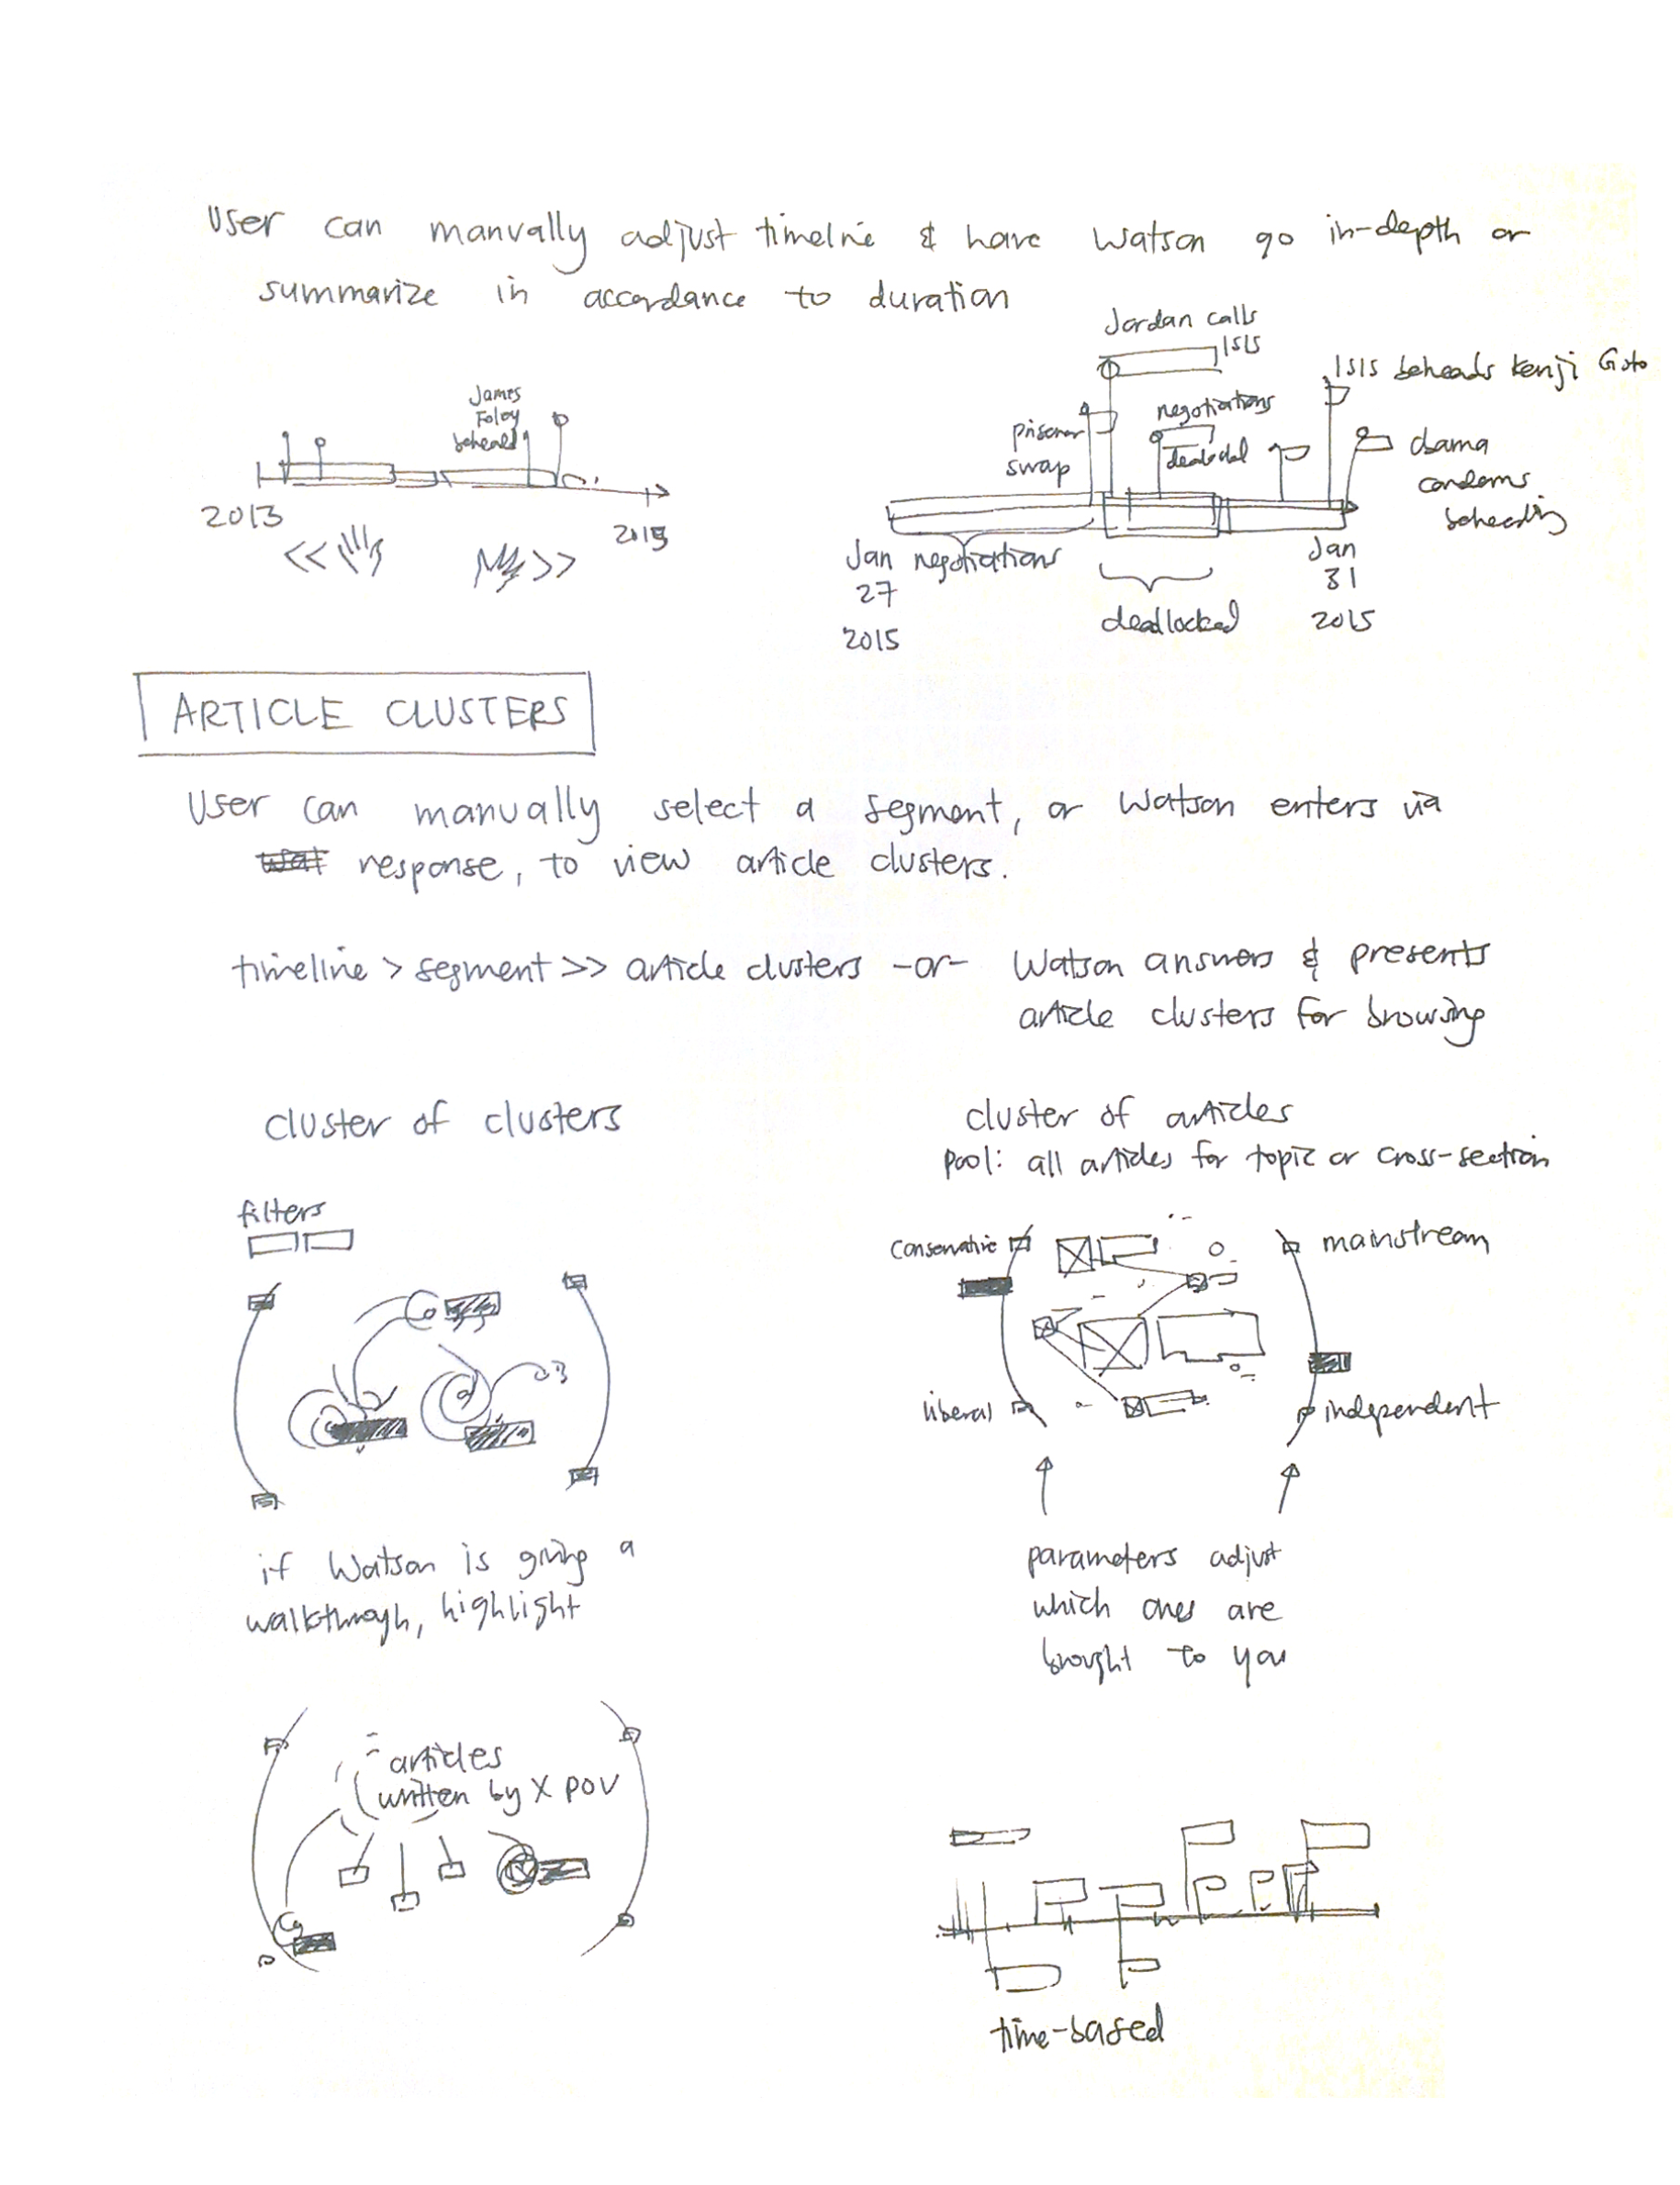 User can manually adjust timeline & have Watson go in-depth or
summarize in accordance to duration
James
Foley
beheaded
2013
2015
<<
>>
Jordan calls
ISIS
ISIS beheads Kenji Goto
prisoner
swap
negotiations
deadlocked
Obama
condems
beheading
Jan
27
2015
negotiations
deadlocked
Jan
31
2015
ARTICLE CLUSTERS
User can manually select a segment, or Watson enters via
response, to view article clusters.
timeline > segment >> article clusters -or- Watson answers & presents
article clusters for browsing
cluster of clusters
filters
if Watson is giving a
walkthrough, highlight
articles
written by X POV
cluster of articles
pool: all articles for topic or cross-section
conservative
mainstream
liberal
independent
parameters adjust
which ones are
brought to you
time-based